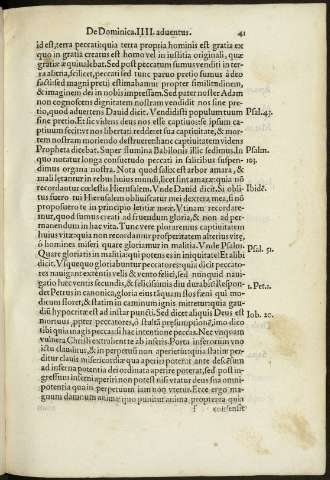 De Dominica. IIII. aduentus. 41
id est, terra peccati: quia terra propria hominis est gratia ex
quo in gratia creatus est homo vel in iustitia originali, quæ
gratiæ æquiualebat. Sed post peccatum sumus venditi in ter-
ra aliena, scilicet, peccati sed tunc paruo pretio sumus à deo
facti: sed magni pretij estimabamur propter similitudinem,
& imaginem dei in nobis impressam. Sed pater noster Adam
non cognoscens dignitatem nostram vendidit nos sine pre-
tio, quod aduertens Dauid dicit. Vendidisti populum tuum Psal. 43.
sine pretio. Et sic videns deus nos esse captiuos: ipse ipsam ca-
ptiuum fecit vt nos libertati redderet sua captiuitate, & mor-
tem nostram moriendo destrueret hanc captiuitatem videns
Propheta dicebat. Super flumina Babilonis illic sedimus. In Psalm.
quo notatur longa consuetudo peccati in salicibus suspendi- 103.
dimus organa nostra. Nota quod salix est arbor amara, &
mali lætantur in rebus huius mundi, licet sint amaræ: quia nõ
recordantur cœlestis Hierusalem. Vnde Dauid dicit. Si obli- Ibidẽ.
tus fuero tui Hierusalem obliuiscatur mei dextera mea, si nõ
proposuero te in principio letitiæ meæ. Vtinam recordare-
mur, quod sumus creati ad fruendum gloria, & non ad per-
manendum in hac vita. Tunc vere ploraremus captiuitatem
huius vitæ: quia non recordamur prosperitatem alterius vitę,
ô homines miseri quare gloriamur in malitia. Vnde Psalm. Psal. 51.
Quare gloriatis in malitia: qui potens es in iniquitate? Et alibi
dicit. Vsquequo gloriabuntur peccatores: quia dicit peccato-
res nauigare extentis velis & vento felici, sed nunquid naui-
gatio hæc ventis secundis, & felicissimis diu durabit? Respon-
der Petrus in canonica, gloria eius tãquam flos fœni qui mo- 1. Pet. 1.
dicum floret, & statim in caminum ignis mittetur: quia gau-
diũ hypocritæ est ad instar puncti. Sed dicet aliquis Deus est Iob. 20.
mortuus, ppter peccatores, ô stulta præsumptiõ, imo dico
sibi quia magis peccasti si hac intentione peccas. Nec vnquam
vulnera Christi extrahent te ab inferis. Porta infernorum vno
ictu clauditur, & in perpetuum non aperitur: quia statim per-
ditur clauis misericordiæ qua aperiri poterat ante descẽsum
ad inferna potentia dei ordinata aperire poterat, sed post in-
gressum inferni aperiri non potest nisi vtatur deus sua omni-
potentia qua in perpetuum iam non vtetur. Ecce ergo ma-
gnum damnum animæ quo punitur anima, propterea quia
f consensit